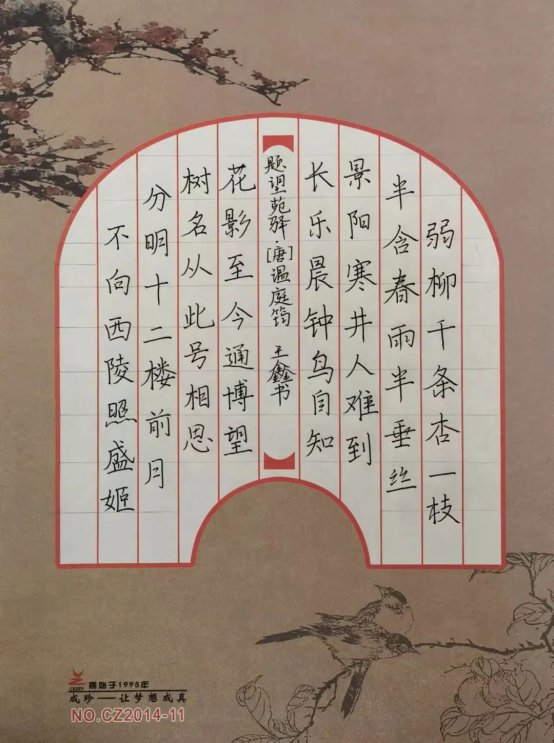 弱柳千条杏一枝
半含春雨半垂丝
景阳寒井人难到
长乐晨钟鸟自知
题望苑驿·[唐]温庭筠 王鑫书
花影至今通博望
树名从此号相思
分明十二楼前月
不向西陵照盛姬
CZZEN 始于1995年
成珍——让梦想成真
NO.CZ2014-11